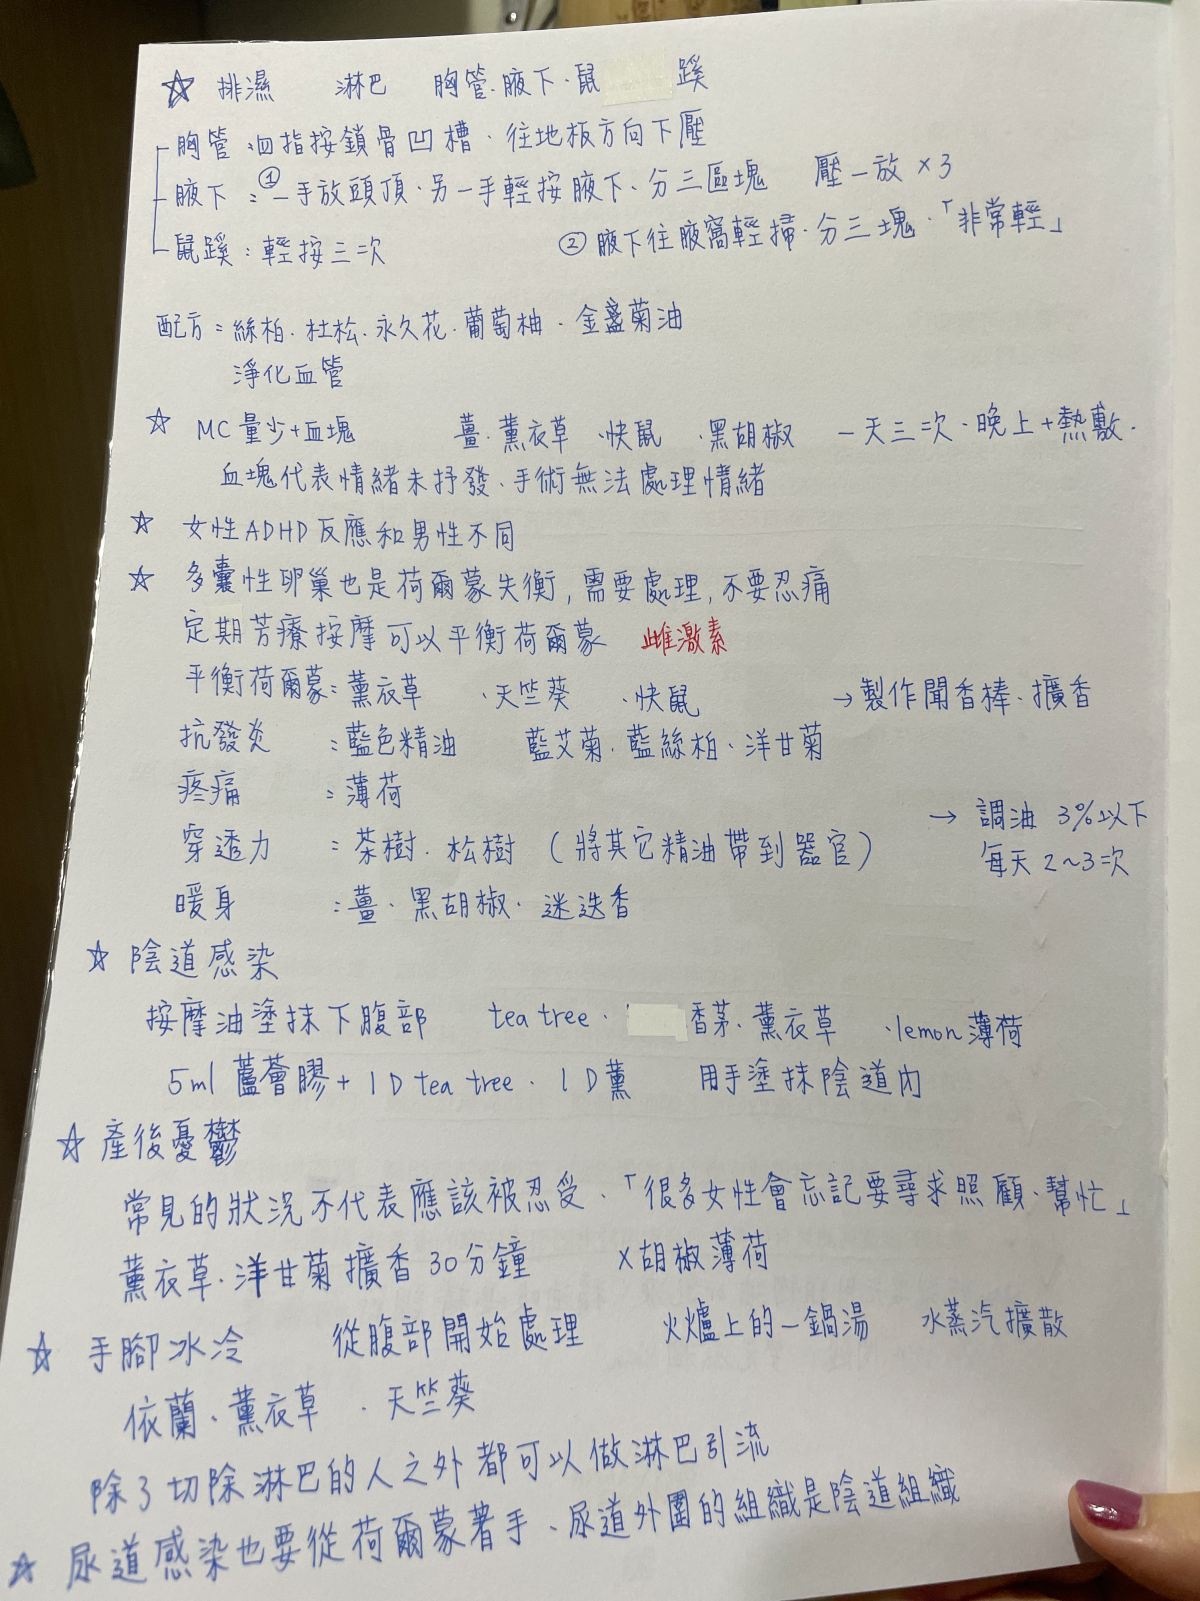 ☆ 排濕 淋巴 胸管、腋下、鼠 蹊
胸管:四指按鎖骨凹槽、往地板方向下壓
腋下:①一手放頭頂、另一手輕按腋下、分三區塊 壓一放×3
②腋下往腋窩輕掃、分三塊、「非常輕」
鼠蹊:輕按三次
配方:絲柏、杜松、永久花、葡萄柚、金盞菊油
淨化血管
☆ MC量少+血塊 薑、薰衣草、快鼠、黑胡椒 一天三次、晚上+熱敷.
血塊代表情緒未抒發、手術無法處理情緒
☆ 女性ADHD反應和男性不同
☆ 多囊性卵巢也是荷爾蒙失衡,需要處理,不要忍痛
定期芳療按摩可以平衡荷爾蒙 雌激素
平衡荷爾蒙:薰衣草、天竺葵、快鼠 →製作聞香棒、擴香
抗發炎 :藍色精油 藍艾菊、藍絲柏、洋甘菊
疼痛 :薄荷
穿透力 :茶樹、松樹(將其它精油帶到器官)
→ 調油 3%以下
每天2~3次
暖身 :薑、黑胡椒、迷迭香
☆ 陰道感染
按摩油塗抹下腹部 tea tree、 香茅、薰衣草、lemon薄荷
5ml 蘆薈膠+1D tea tree、1D薰 用手塗抹陰道內
☆ 產後憂鬱
常見的狀況不代表應該被忍受、「很多女性會忘記要尋求照顧、幫忙」
薰衣草、洋甘菊擴香30分鐘 x胡椒薄荷
☆ 手腳冰冷 從腹部開始處理 火爐上的一鍋湯 水蒸汽擴散
依蘭、薰衣草、天竺葵
除了切除淋巴的人之外都可以做淋巴引流
☆ 尿道感染也要從荷爾蒙著手、尿道外圍的組織是陰道組織